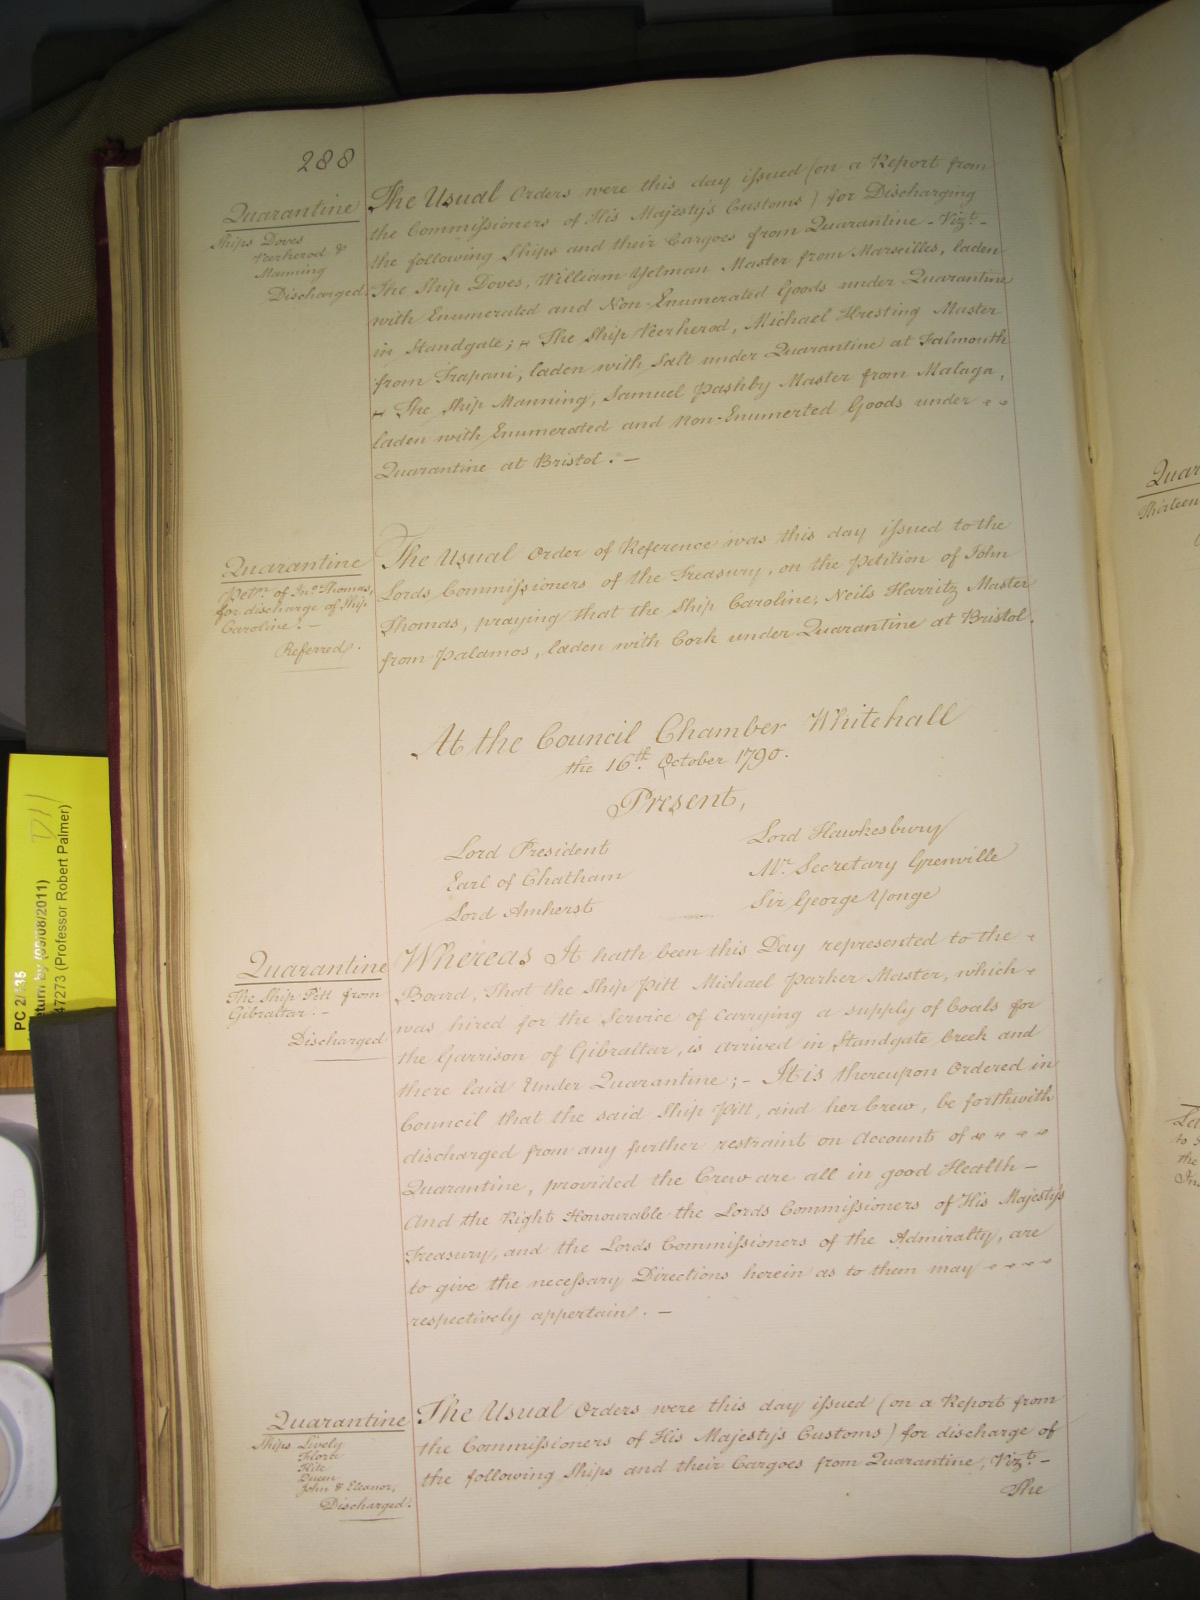 288
Quarantine
Ships Doves
Veerherod &
Manning
Discharged.
The Usual Orders were this day issued (on a Report from
the Commissioners of His Majesty's Customs) for Discharging
the following Ships and their Cargoes from Quarantine - Vizt. -
The Ship Doves, William Yelman Master from Marseilles, laden
with Enumerated and Non-Enumerated Goods under Quarantine
in Standgate; - The Ship Veerherod, Michael Hresting Master
from Trapani, laden with Salt under Quarantine at Falmouth
- The Ship Manning, Samuel Pashby Master from Malaga,
laden with Enumerated and Non-Enumerted Goods under
Quarantine at Bristol. -
Quarantine
Petn. of Jno. Thomas,
for discharge of Ship
Caroline. -
Referred.
The Usual Order of Reference was this day issued to the
Lords Commissioners of the Treasury, on the Petition of John
Thomas, praying that the Ship Caroline, Neils Harritz Master
from Palamos, laden with Cork under Quarantine at Bristol.
At the Council Chamber Whitehall
the 16th. October 1790.
Present,
Lord President
Earl of Chatham
Lord Amherst
Lord Hawkesbury
Mr. Secretary Grenville
Sir George Yonge
Quarantine
The Ship Pitt from
Gibraltar. -
Discharged
Whereas It hath been this Day represented to the
Board, That the Ship Pitt Michael Parker Master, which
was hired for the Service of carrying a supply of Coals for
the Garrison of Gibraltar, is arrived in Standgate Creek and
there laid Under Quarantine; - It is thereupon Ordered in
Council that the said Ship Pitt, and her Crew, be forthwith
discharged from any further restraint on Account of
Quarantine, provided the Crew are all in good Health -
And the Right Honourable the Lords Commissioners of His Majesty's
Treasury, and the Lords Commissioners of the Admiralty, are
to give the necessary Directions herein as to them may
respectively appertain. -
Quarantine
Ships Lively
Flora
Hite
Queen
John & Eleanor,
Discharged.
The Usual Orders were this day issued (on a Report from
the Commissioners of His Majesty's Customs) for discharge of
the following Ships and their Cargoes from Quarantine, Vizt. -
The
PC 2/135
turn by (09/08/2011)
47273 (Professor Robert Palmer)
D11
Quar
Thirteen